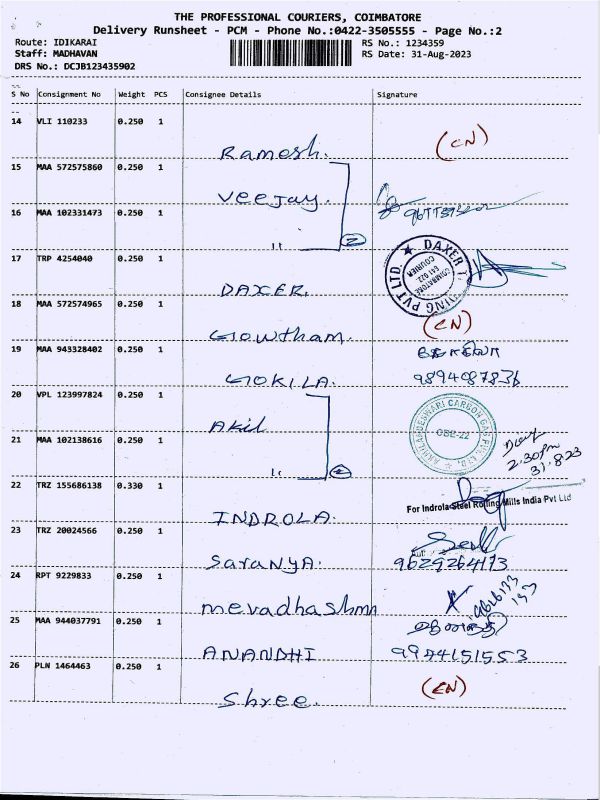 THE PROFESSIONAL COURIERS, COIMBATORE
Delivery Runsheet - PCM - Phone No.:0422-3505555 - Page No.:2
Route: IDIKARAI RS No.: 1234359
Staff: MADHAVAN RS Date: 31-Aug-2023
DRS No.: DCJB123435902
S No Consignment No Weight PCS Consignee Details Signature
14 VLI 110233 0.250 1
Ramesh. (CN)
15 MAA 572575860 0.250 1
Veejay.
16 MAA 102331473 0.250 1
" 2
17 TRP 4254040 0.250 1
DAXER. DAXER PVT LTD. COIMBATORE 641 022. COURIER
18 MAA 572574965 0.250 1
Gowtham. (CN)
19 MAA 943328402 0.250 1
GOKILA. 9894087836
20 VPL 123997824 0.250 1
Akil
21 MAA 102138616 0.250 1
" 2:30pm
31.8.23
22 TRZ 155686138 0.330 1
For Indrola Steel Rolling Mills India Pvt Ltd
INDROLA.
23 TRZ 20024566 0.250 1
Saranya. 9629264173
24 RPT 9229833 0.250 1
mevadhashmn
25 MAA 944037791 0.250 1
ANANDHI 9944151553
26 PLN 1464463 0.250 1
Shree. (CN)